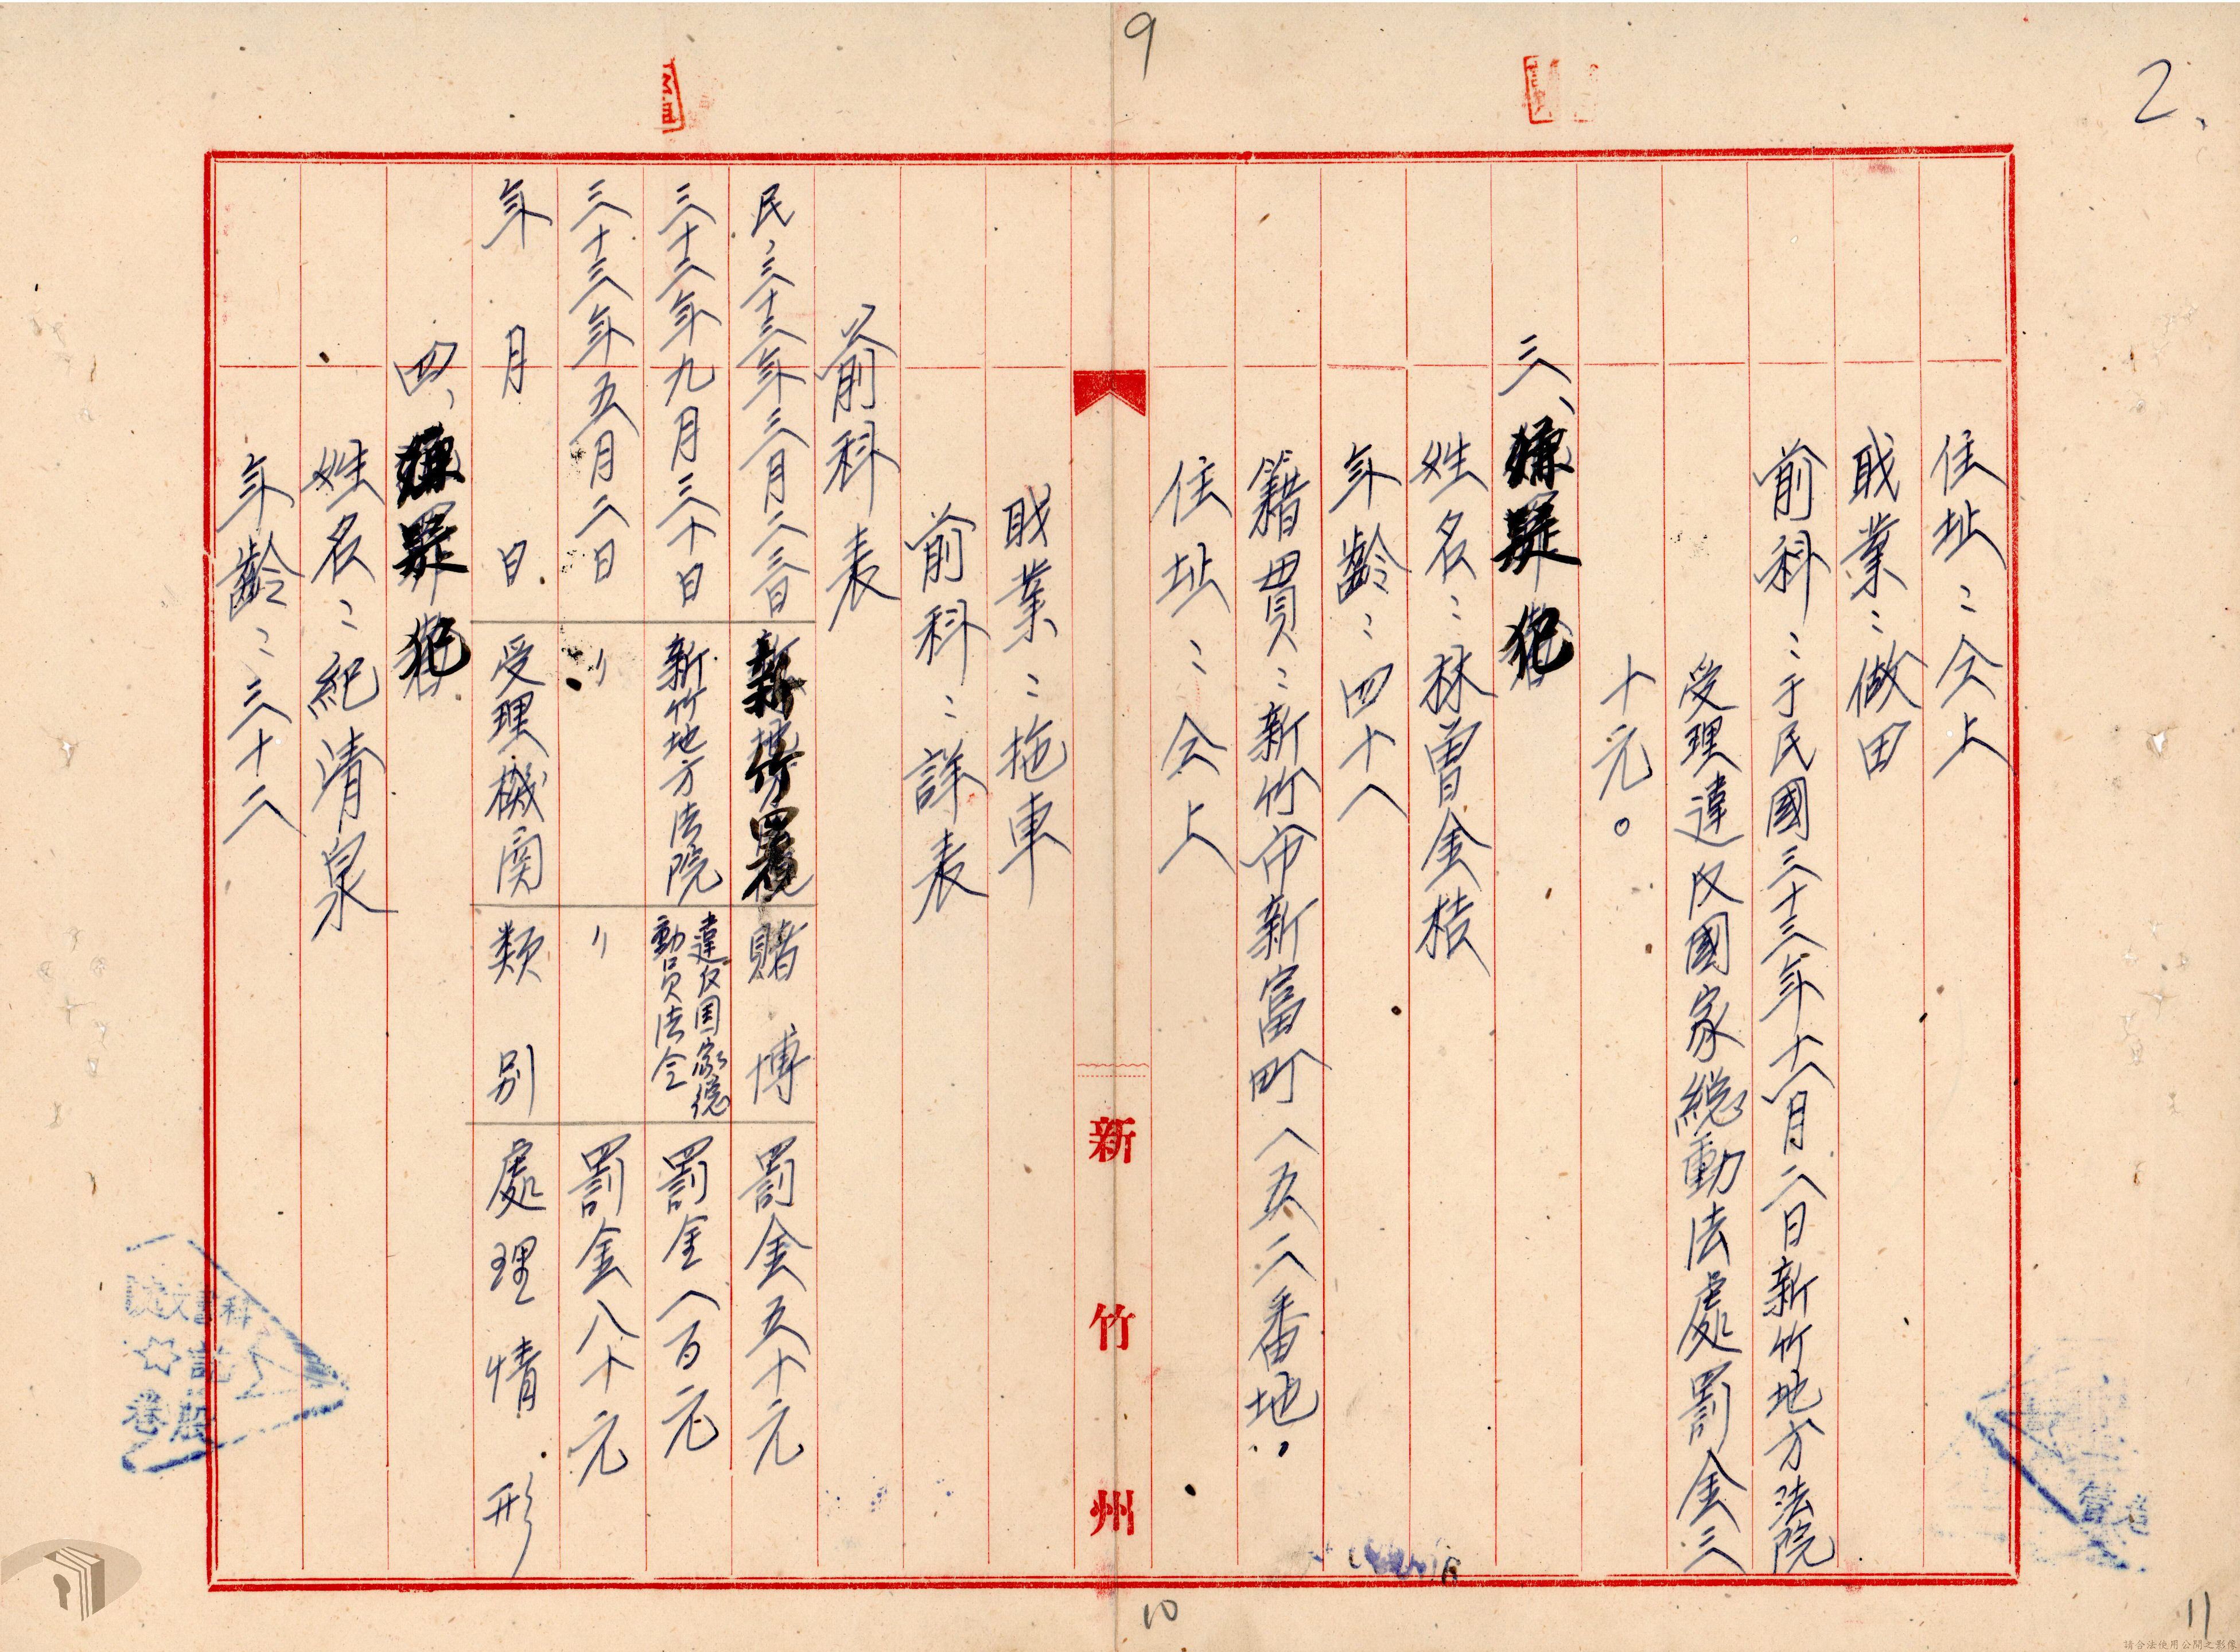 9
2.
住址：仝上
職業：做田
前科：于民國三十三年十一月二日新竹地方法院
受理違反國家總動法處罰金三
十元。
三、嫌疑犯
姓名：林曾金桔
年齡：四十八
籍貫：新竹市新富町八五二番地
住址：仝上
新竹州
職業：拖車
前科：詳表
前科表
民、三十三年三月二三日 新竹署 賭博 罰金五十元
三十二年九月三十日 新竹地方法院 違反国家總動員法令 罰金八百元
三十三年五月二日 〃 〃 罰金八十元
年 月 日 受理機関 類別 處理情形
四、嫌疑犯
姓名：紀清泉
年齡：三十二
10
11
請合法使用公開之影像